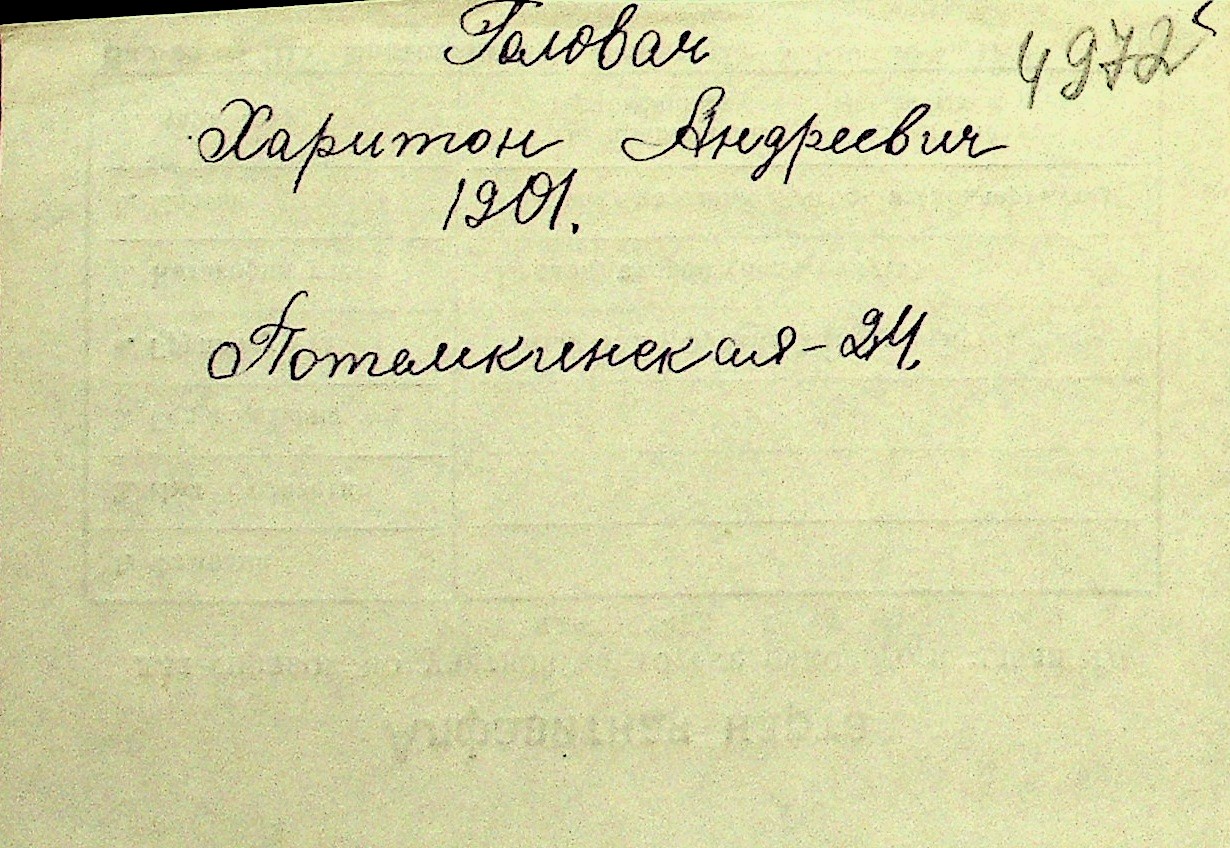 Головач
4972
Харитон Андреевич
1901.
Потемкинская-24.